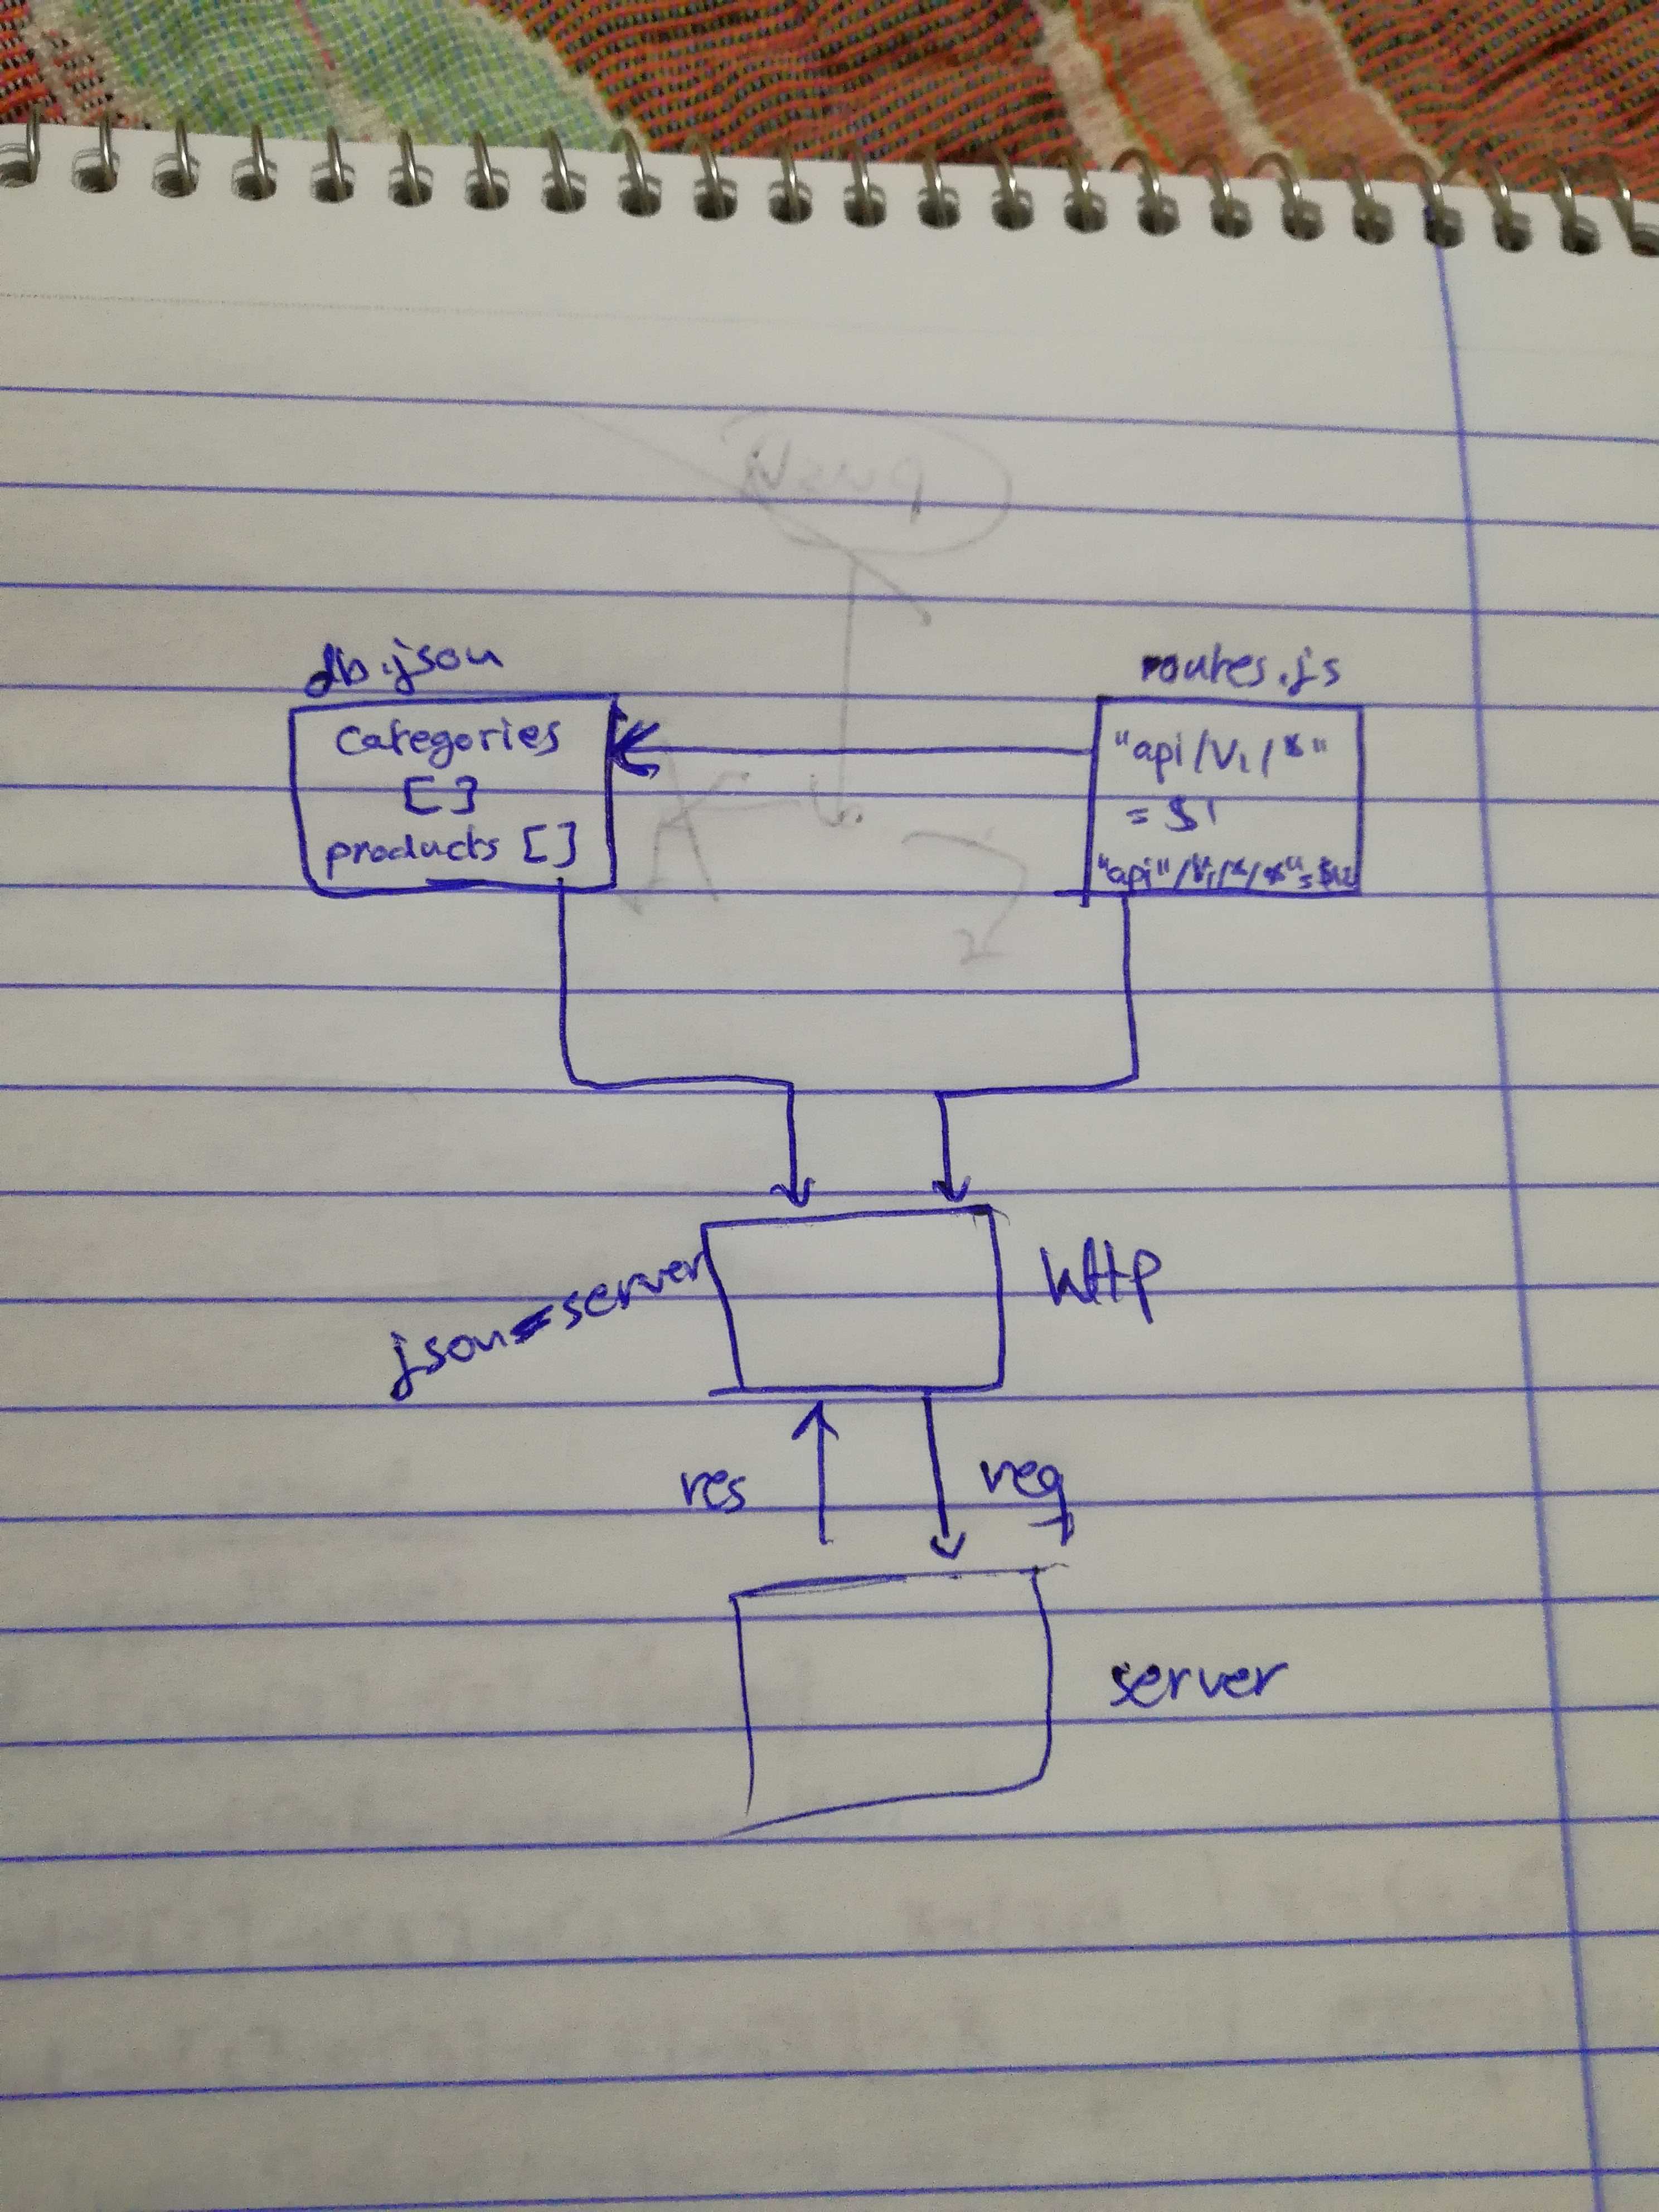 db.json
categories
[ ]
products [ ]
routes.js
"api/V1/*"
= $1
json-server
http
res
req
server